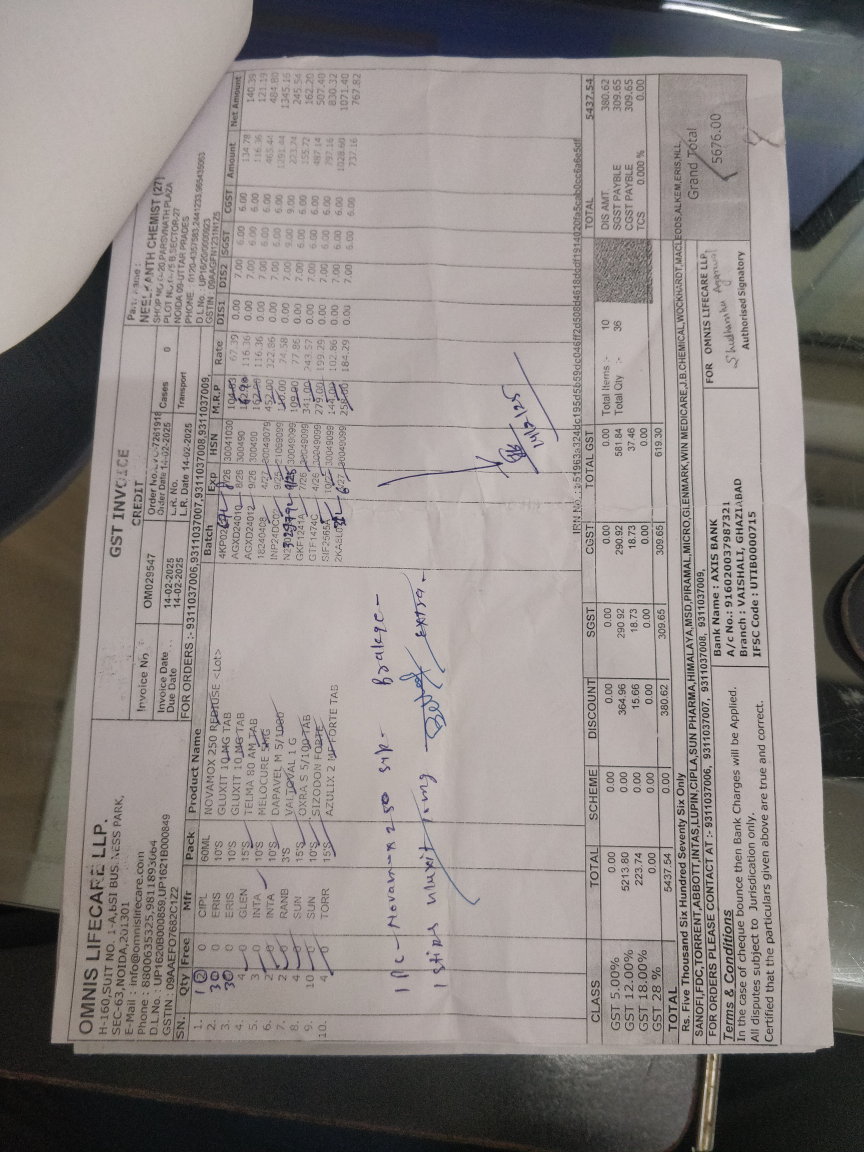 GST INVOICE
CREDIT
OMNIS LIFECARE LLP.
H-160,SUIT NO. 1-A,BSI BUSINESS PARK,
SEC-63,NOIDA,201301
E-Mail : info@omnislifecare.com
Phone : 8800635325,9811893064
D.L.No. : UP1620B000859,UP1621B000849
GSTIN : 09AAEFO7682C1Z2
Invoice No OM029547
Invoice Date 14-02-2025
Due Date 14-02-2025
Order Date 14-02-2025
L.R. No.
L.R. Date 14-02-2025
Cases 0
Transport
NEELKANTH CHEMIST (27)
NOIDA 09-UTTAR PRADES
FOR ORDERS :- 9311037006,9311037007,9311037008,9311037009,
SN. Qty Free Mfr Pack Product Name Batch Exp HSN M.R.P Rate DIS1 DIS2 SGST CGST Amount Net Amount
1. 1 0 CIPL 60ML NOVAMOX 250 REDIUSE <Lot> 30041030 67.39 0.00 7.00 6.00 6.00 134.78 140.39
2. 30 0 ERIS 10'S GLUXIT 10 MG TAB AGXD24010 8/26 300490 116.36 0.00 7.00 6.00 6.00 116.36 121.19
3. 30 0 ERIS 10'S GLUXIT 10 MG TAB AGXD24012 9/26 300490 116.36 0.00 7.00 6.00 6.00 465.44 484.80
4. 4 0 GLEN 15'S TELMA 80 AM TAB 18240408 4/27 30049079 452.00 322.86 0.00 7.00 6.00 6.00 1291.44 1345.16
5. 3 0 INTA 10'S MELOCURE 74.58 0.00 7.00 9.00 9.00 223.74 245.54
6. 2 0 INTA 10'S DAPAVEL M 5/1000 30049099 109.00 77.86 0.00 7.00 6.00 6.00 155.72 162.20
7. 2 0 RANB 3'S VALTOVAL 1 G GKF1241A 7/26 30049099 341.00 243.57 0.00 7.00 6.00 6.00 487.14 507.40
8. 4 0 SUN 15'S OXRA S 5/100 TAB GTF1474C 4/26 30049099 279.00 199.29 0.00 7.00 6.00 6.00 797.16 830.32
9. 10 0 SUN 10'S SIZODON FORTE 30049099 144.00 102.86 0.00 7.00 6.00 6.00 1028.60 1071.40
10. 4 0 TORR 15'S AZULIX 2 MF FORTE TAB 30049099 258.00 184.29 0.00 7.00 6.00 6.00 737.16 767.82
1 pc - Novamox 250 syp - Brakge -
1 strips Gluxit 10mg extra -
14/2/25
CLASS TOTAL SCHEME DISCOUNT SGST CGST TOTAL GST
GST 5.00% 0.00 0.00 0.00 0.00 0.00 0.00
GST 12.00% 5213.80 0.00 364.96 290.92 290.92 581.84
GST 18.00% 223.74 0.00 15.66 18.73 18.73 37.46
GST 28 % 0.00 0.00 0.00 0.00 0.00 0.00
TOTAL 5437.54 0.00 380.62 309.65 309.65 619.30
Total Items :- 10
Total Qty :- 36
TOTAL 5437.54
DIS AMT. 380.62
SGST PAYBLE 309.65
CGST PAYBLE 309.65
TCS 0.000 % 0.00
Rs. Five Thousand Six Hundred Seventy Six Only
Grand Total
5676.00
SANOFI,FDC,TORRENT,ABBOTT,INTAS,LUPIN,CIPLA,SUN PHARMA,HIMALAYA,MSD,PIRAMAL,MICRO,GLENMARK,WIN MEDICARE,J.B.CHEMICAL,WOCKHARDT,MACLEODS,ALKEM,ERIS,HLL,
FOR ORDERS PLEASE CONTACT AT :- 9311037006, 9311037007, 9311037008, 9311037009,
Terms & Conditions
In the case of cheque bounce then Bank Charges will be Applied.
All disputes subject to Jurisdication only.
Certified that the particulars given above are true and correct.
Bank Name : AXIS BANK
A/c No.: 916020037987321
Branch : VAISHALI, GHAZIABAD
IFSC Code : UTIB0000715
FOR OMNIS LIFECARE LLP.
Authorised Signatory